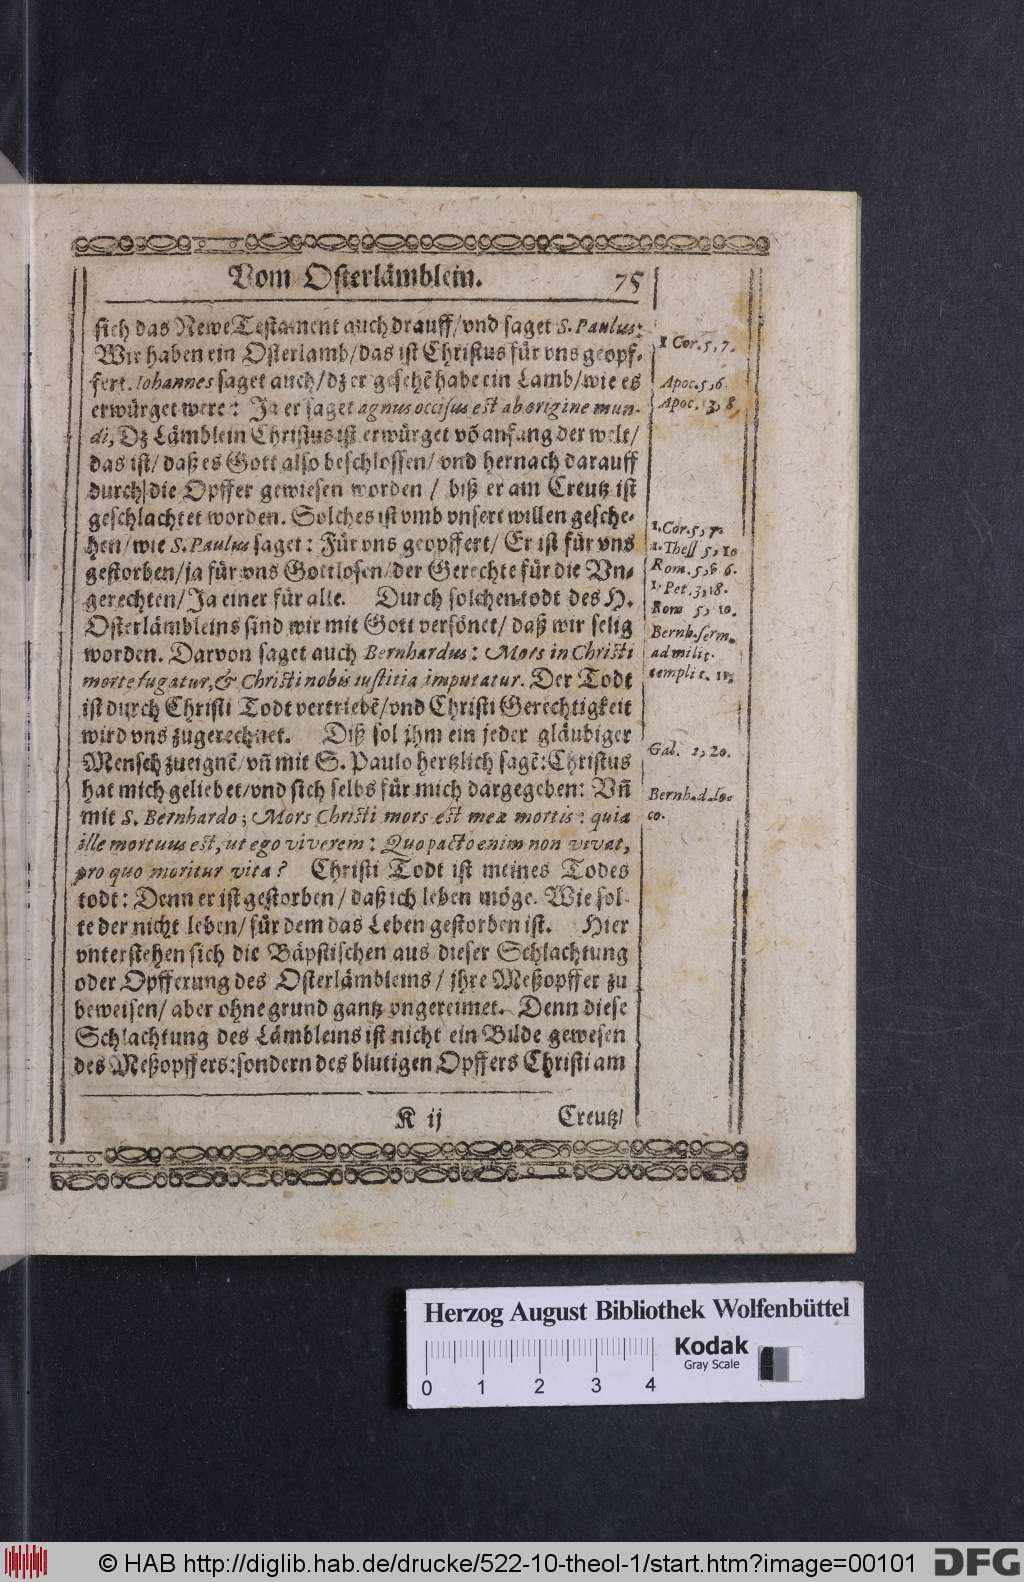 Vom Osterlämblein. 75
sich das Newe Testament auch drauff/ vnd saget S. Paulus:
Wir haben ein Osterlamb/ das ist Christus für vns geopf-
fert. Iohannes saget auch/ dz er gesehẽ habe ein Lamb/ wie es
erwürget were: Ja er saget agnus occisus est ab origine mun-
di, Dz Lämblein Christus ist erwürget võ anfang der welt/
das ist/ daß es Gott also beschlossen/ vnd hernach darauff
durch die Opffer gewiesen worden / biß er am Creutz ist
geschlachtet worden. Solches ist vmb vnsert willen gesche-
hen/ wie S. Paulus saget: Für vns geopffert/ Er ist für vns
gestorben/ ja für vns Gottlosen/ der Gerechte für die Vn-
gerechten/ Ja einer für alle. Durch solchen todt des H.
Osterlämbleins sind wir mit Gott versönet/ daß wir selig
worden. Darvon saget auch Bernhardus: Mors in Christi
morte fugatur, & Christi nobis iustitia imputatur. Der Todt
ist durch Christi Todt vertriebẽ/ vnd Christi Gerechtigkeit
wird vns zugerechnet. Diß sol jhm ein jeder gläubiger
Mensch zueignẽ/ vñ mit S. Paulo hertzlich sagẽ: Christus
hat mich geliebet/ vnd sich selbs für mich dargegeben: Vñ
mit S. Bernhardo; Mors Christi mors est meæ mortis: quia
ille mortuus est, ut ego viverem: Quo pacto enim non vivat,
pro quo moritur vita? Christi Todt ist meines Todes
todt: Denn er ist gestorben / daß ich leben möge. Wie sol-
te der nicht leben/ für dem das Leben gestorben ist. Hier
vnterstehen sich die Bäpstischen aus dieser Schlachtung
oder Opfferung des Osterlämbleins / jhre Meßopffer zu
beweisen/ aber ohne grund gantz vngereimet. Denn diese
Schlachtung des Lämbleins ist nicht ein Bilde gewesen
des Meßopffers: sondern des blutigen Opffers Christi am
K ij Creutz/
1 Cor. 5, 7.
Apoc. 5, 6.
Apoc. 13, 8.
1. Cor. 5, 7.
1. Thess 5, 10
Rom. 5, 8 6.
1. Pet. 3, 18.
Rom 5, 10.
Bernh. serm.
ad milit.
templi c. 11.
Gal. 2, 20.
Bernh. d. lo-
co.
Herzog August Bibliothek Wolfenbüttel
Kodak
Gray Scale
0 1 2 3 4
© HAB http://diglib.hab.de/drucke/522-10-theol-1/start.htm?image=00101
DFG